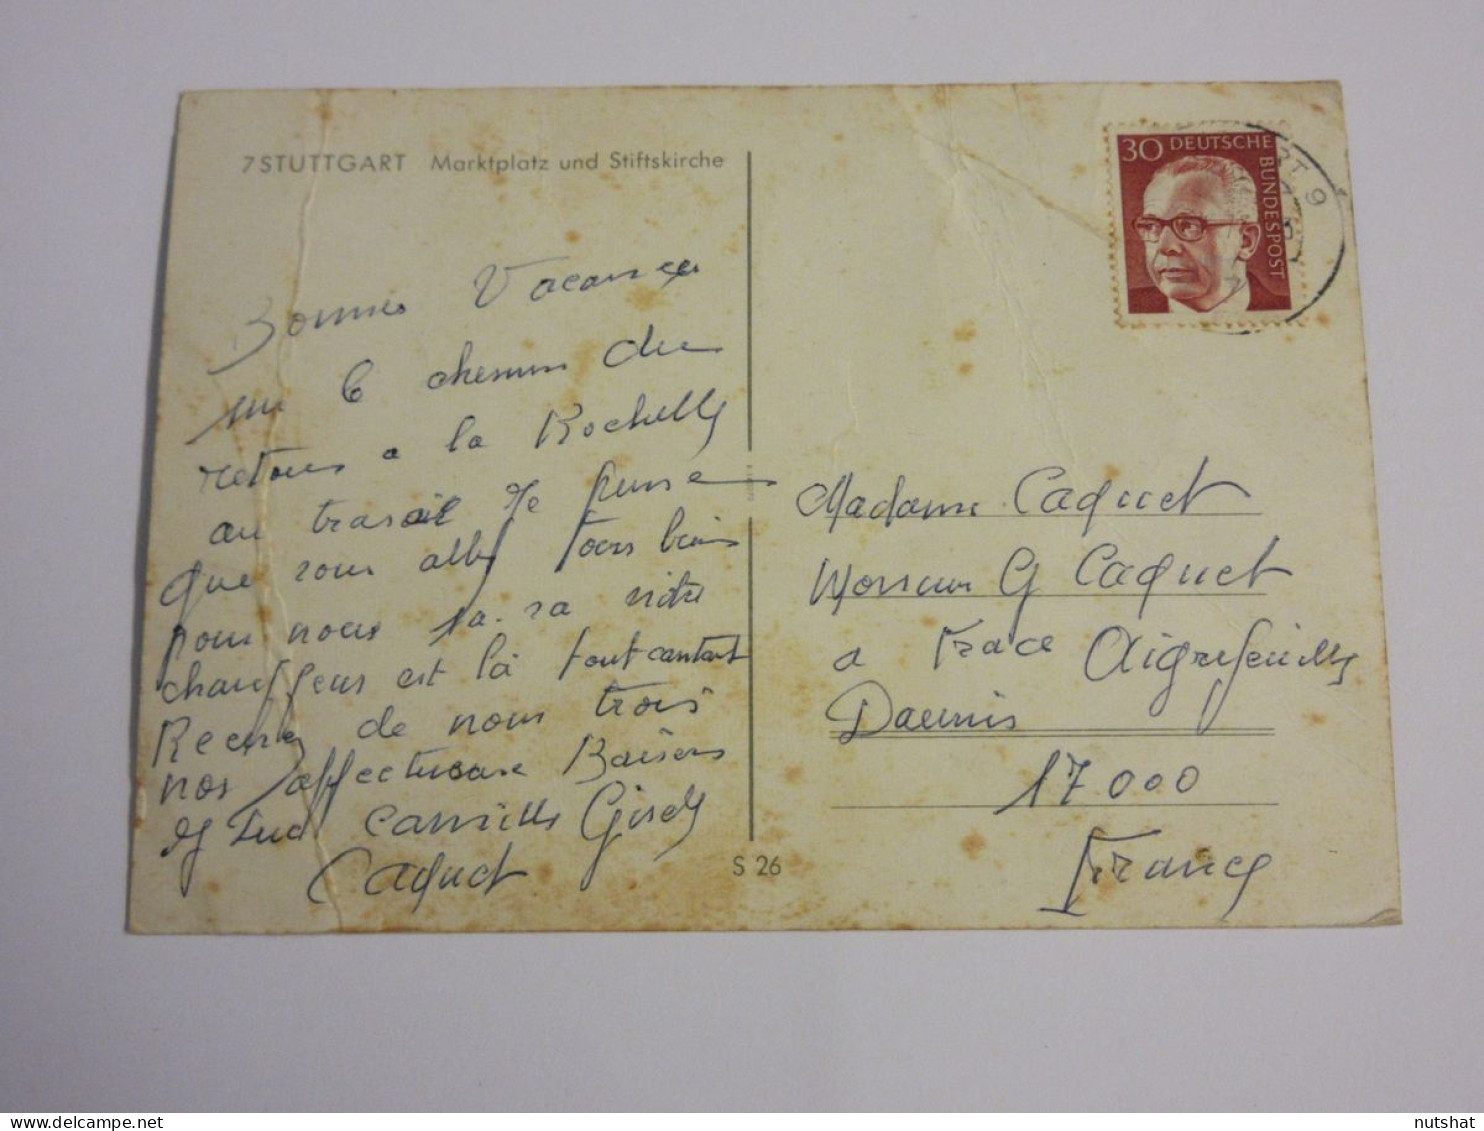 7 STUTTGART Marktplatz und Stiftskirche
Bonnes Vacances
sur le chemin du
retour a la Rochelle
au travail Je pense
que vous allez tous bien
pour nous sa. va notre
chauffeur est là tout content
Recevez de nous trois
nos affectueux Baisers
Camille Gisely
Caquet
S 26
30 DEUTSCHE
BUNDESPOST
Madame Caquet
Monsieur G Caquet
a Aigrefeuille
Daunis
17000
France
nutshat